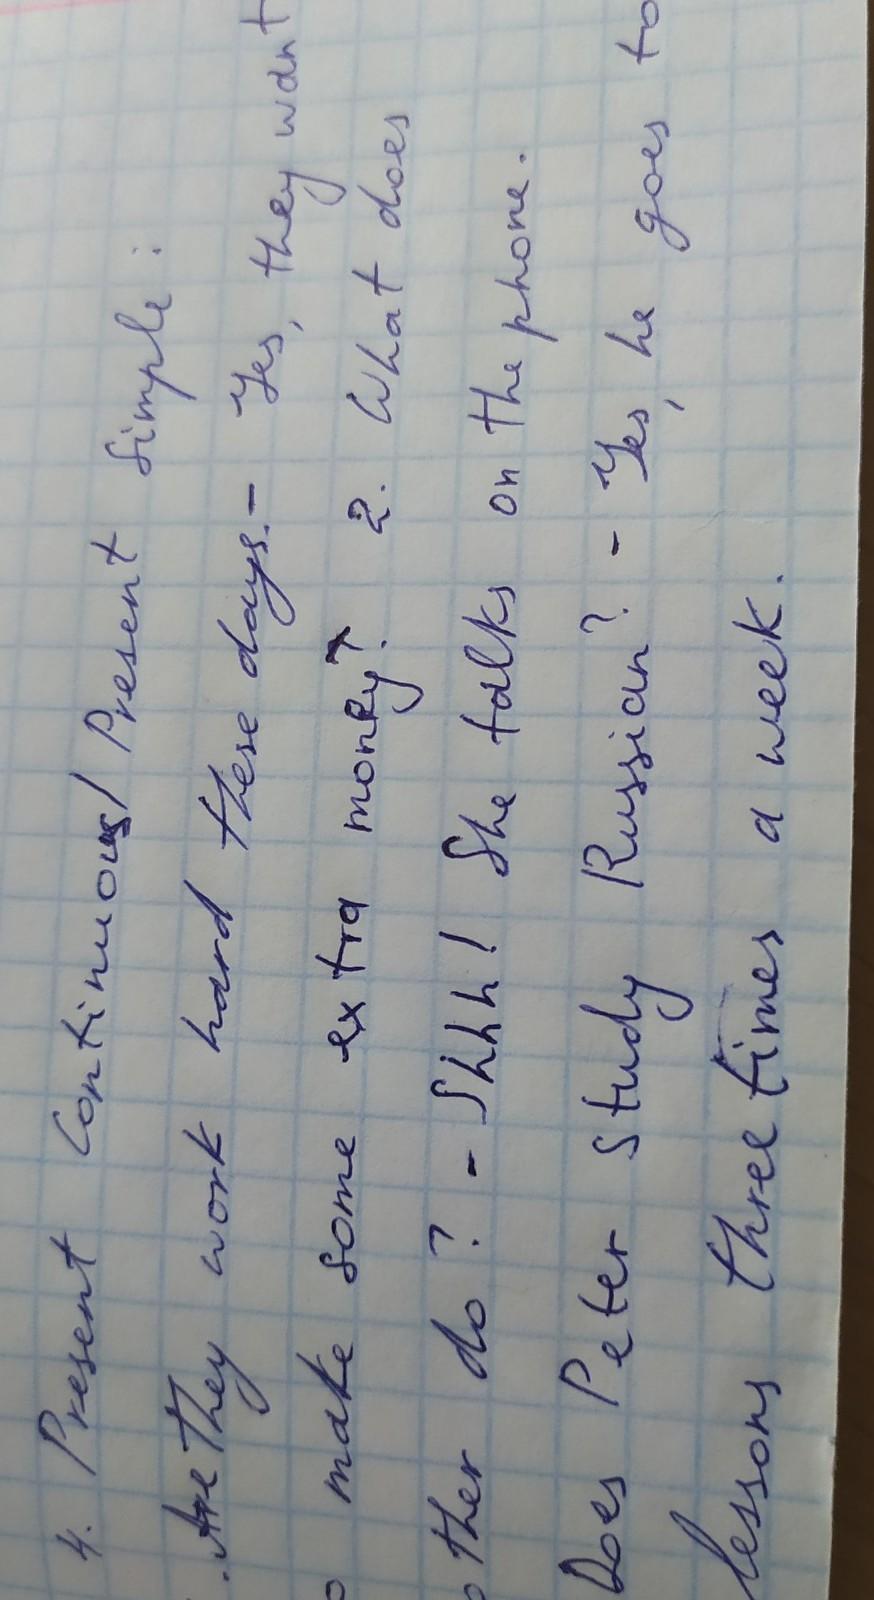 4. Present Continuous/ Present Simple:
. Are they work hard these days. - Yes, they want
o make some extra money? 2. What does
other do? - Shhh! She talks on the phone.
Does Peter study Russian? - Yes, he goes to
lessons three times a week.